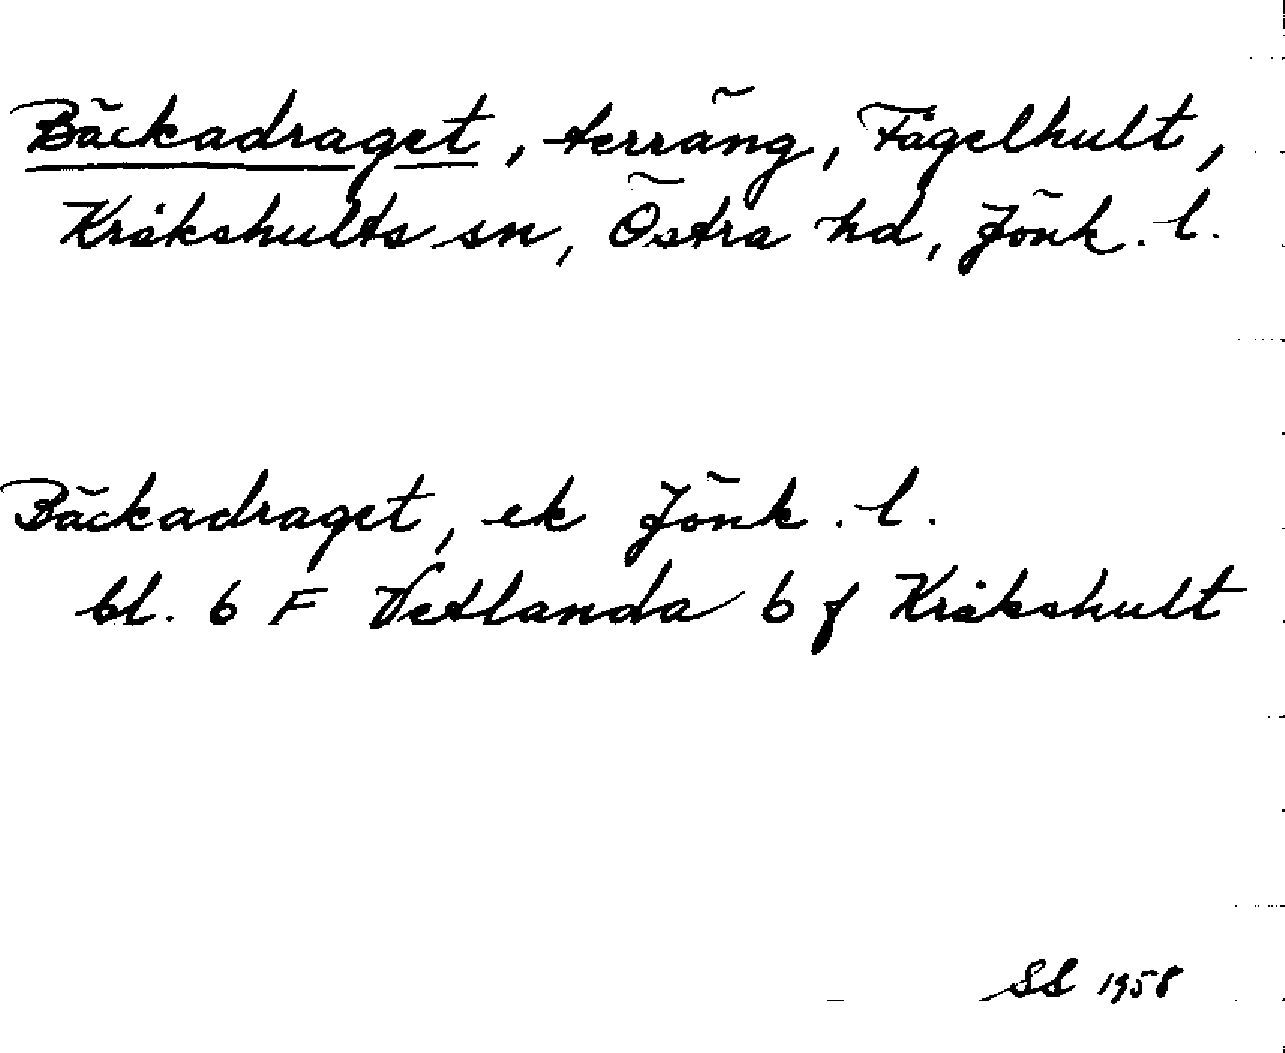 Bäckadraget, terräng, Fågelhult,
Kråkshults sn, Östra hd, Jönk. l.
Bäckadraget, ek Jönk. l.
bl. 6 F Vetlanda 6 f Kråkshult
SS 1958